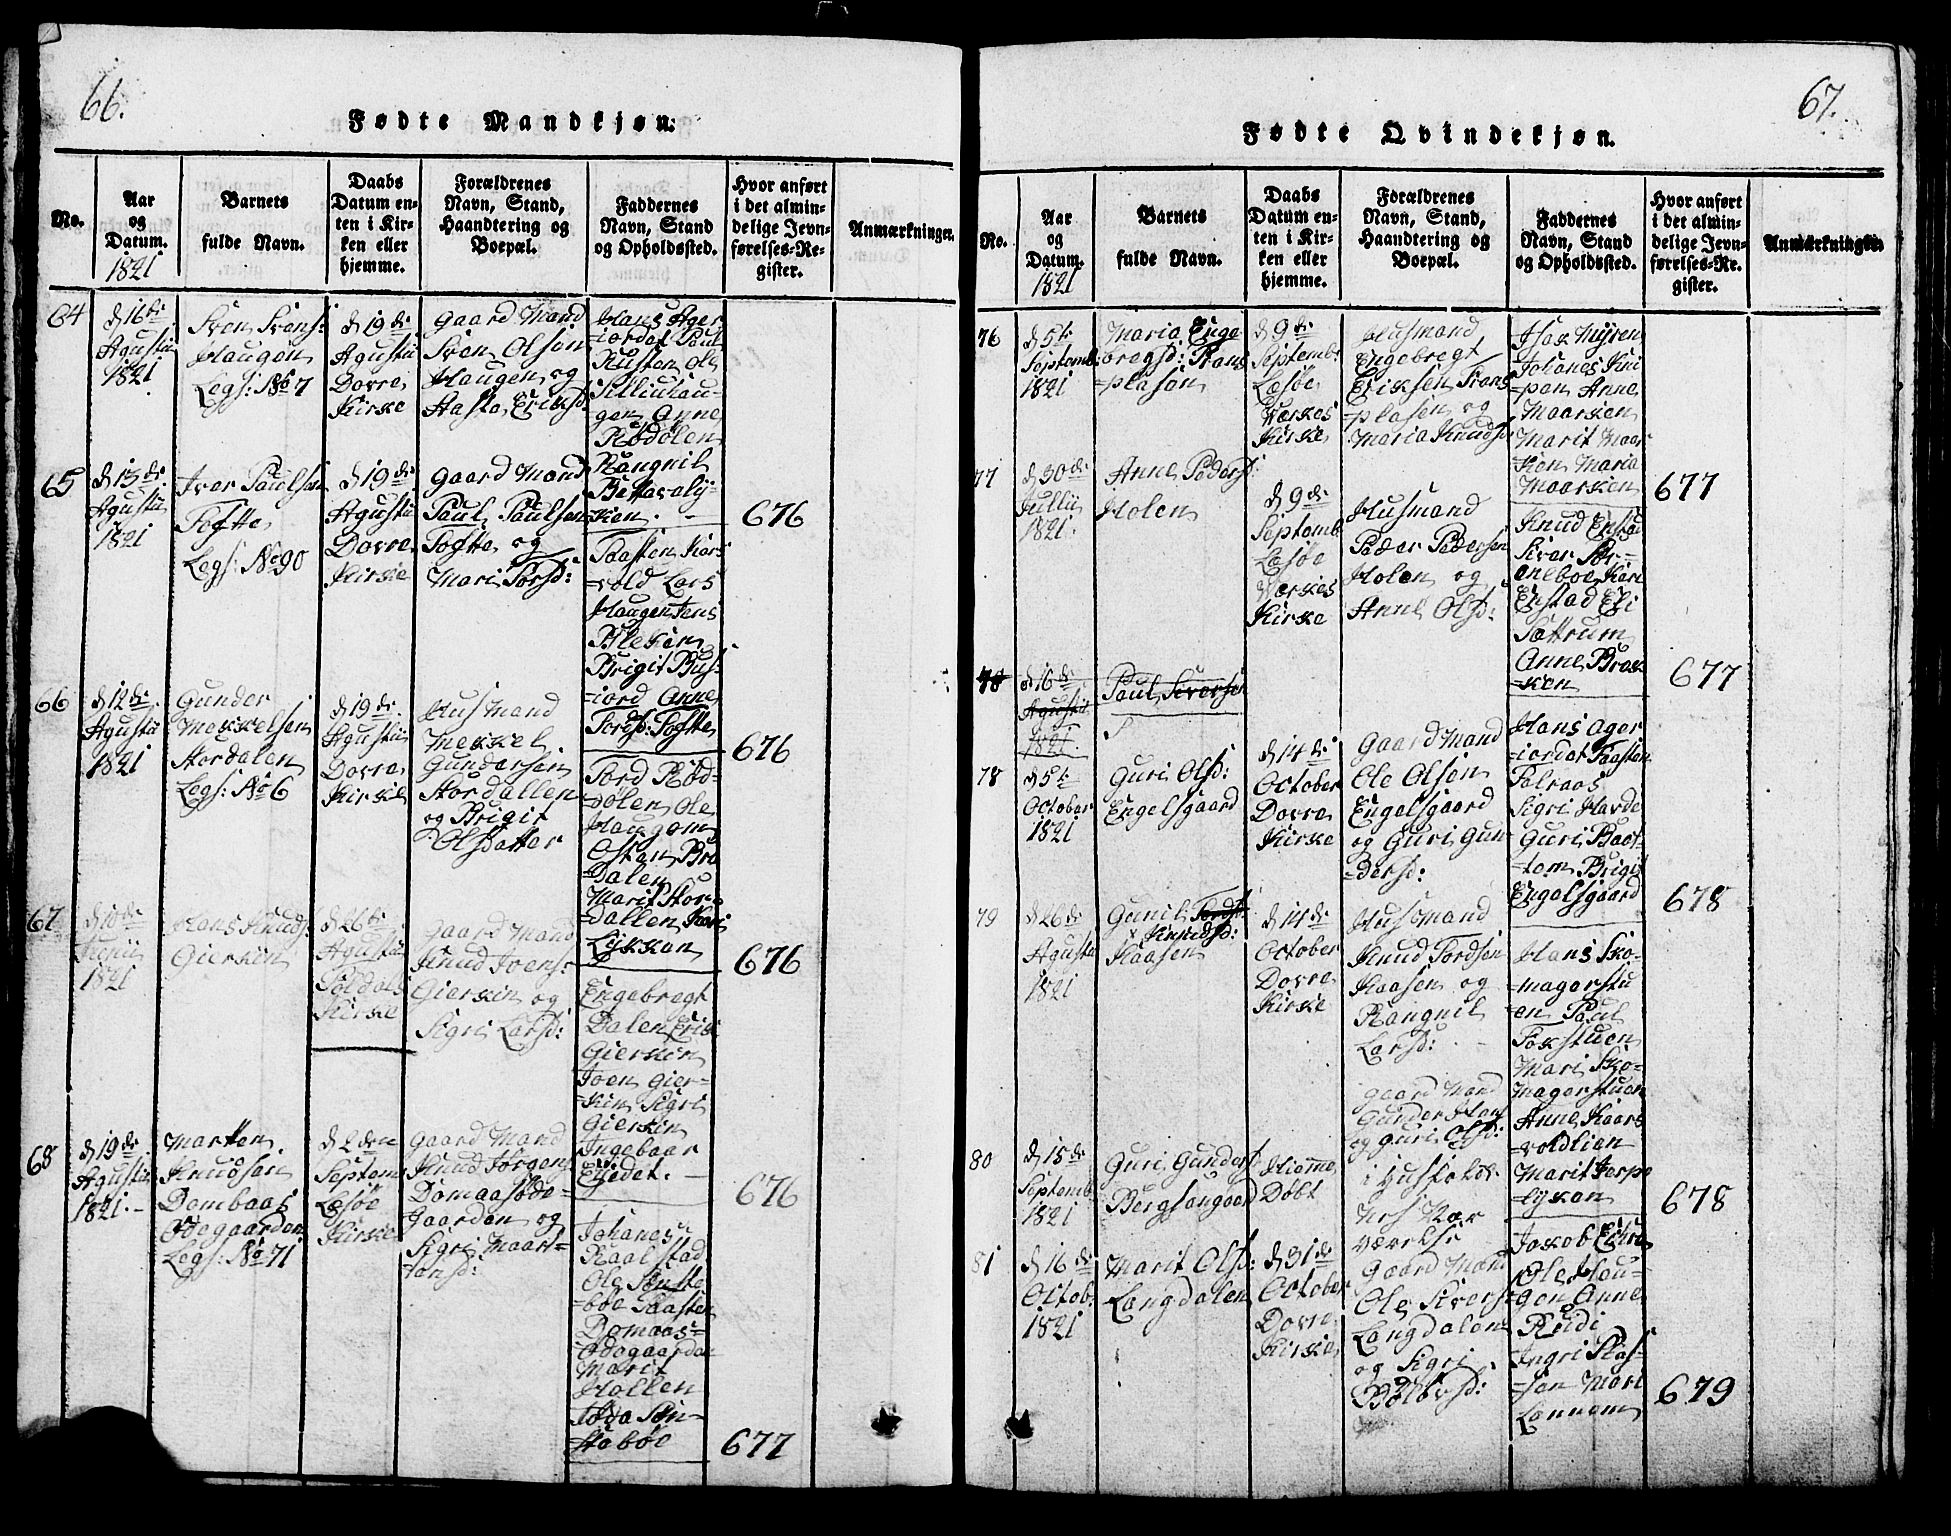 66.
Fødte Mandkjøn.
No.
Aar
og
Datum.
1821
Barnets
fulde Navn.
Daabs
Datum en-
ten i Kir-
ken eller
hjemme.
Forældrenes
Navn, Stand,
Haandtering og
Boepæl.
Faddernes
Navn, Stand
og Opholdssted.
Hvor anført
i det almin-
delige Jevn-
førelses-Re-
gister.
Anmærkninger.
64
d 16de
Agustii
1821
Sven Svens:
Haugen
Legs: No 7
d 19de
Agustii
Dovre
Kirke
Gaard Mand
Sven Olsen
Haugen og
Aaste Eriksd:
Hans Ager
=iordet Paul
Rusten Ole
Haugen Anne
Rødølen
Rangnil
ken.
676
65
d 13de
Agustii
1821
Iver Paulsen
Tofte
Legs: No 90
d 19de
Agustii
Dovre
Kirke
Gaard Mand
Paul Paulsen
Tofte og
Mari Torsd:
Paasten Kors
=vold Lars
Haugen Jens
Bleken
Brigit Bus-
=iord Anne
Tordsd: Tofte
676
66
d 12de
Agustii
1821
Gunder
Mekkelsen
Stordalen
Legs: No 6
d 19de
Agustii
Dovre
Kirke
Huusmand
Mekkel
Gundersen
Stordallen
og Brigit
Olsdatter
Tord Rød-
=dølen Ole
Haugen
Osten Bro
=Dalen
Marit Stor=
=dallen Kari
Lykken
676
67
d 10de
1821
Hans Knuds:
Gierkin
d 26de
Agustii
Kirke
Gaard Mand
Knud Joens:
Gierkin og
Sigri Larsd:
Engebregt
Dalen Erik
Gierkin
Joen Gier-
=kin Sigri
Gierkin
Ingebaar
Egedet.
676
68
d 19de
Agustii
1821.-
Marten
Knudsen
Dombaas
Ødegaarden
Legs: No 71
d 2den
Septem
Lesøe
Kirke
Gaard Mand
Knud Jørgens
Domaasøde=
=Gaarden og
Sigri Maar-
=tensd:
Johanes
Raalstad
Ole Stuste
=bøe Paasten
Domaas=
=Ødegaarden
Marit
Hollen
=stebøe
677
67.
Fødte Qvindekjøn.
No.
Aar
og
Datum.
1821
Barnets
fulde Navn.
Daabs
Datum en-
ten i Kir-
ken eller
hjemme.
Forældrenes
Navn, Stand,
Haandtering og
Boepæl.
Faddernes
Navn, Stand
og Opholdssted.
Hvor anført
i det almin-
delige Jevn-
førelses-Re-
gister.
Anmærkninger.
76
d 5te
Septemb
1821
Maria Enge
bregsd: Trans
=plasen
d 9de
Septemb:
Lesøe
Værkes
Kirke
Husmand
Engebregt
Eriksen Trans
=plasen og
Maria Knudsd
Isak Myren
Johanes Kni
=pen Anne
Maarken
Marit Maar
=ken Maria
Maarken
677
77
d 30de
Jullii
1821.
Anne Pedersd:
Holen
d 9de
Septemb
Lesøe
Værkes
Kirke
Husmand
Peder Pedersen
Holen og
Anne Olsd:
Knud Enstad
Enstad Eli
Sættrum
Anne Brek
=ken
677
78
d 16de
Agustii
1821.
Paul Siversen
78
d 5te
October
1821
Guri Olsd:
Engelsgaard
d 14de
October
Dovre
Kirke
Gaard Mand
Ole Olsen
Engelsgaard
og Guri Gun
=dersd:
Hans Ager
=iordet Paasten
Talraas
Sigri Harde
Guri Baat-
=tom Brigit
Engelsgaard
678
79
d 26de
Agustii
1821
Gunil Tordsd:
x Knudsd:
Kaasen
d 14de
October
Dovre
Kirke
Husmand
Knud Tordsen
Kaasen og
Rangnil
Larsd:
Hans Sko-
=magerstu
=en Paul
Fokstuen
Mari Sko-
Magerstuen
Anne Kaars
=voldlien
Marit Jorpe
=lyken
678
80
d 15de
Septemb
1821
Guri Gundersd
Bergsengaard
Hiemme
Døbt
Gaard Mand
Gunder Hans
og Guri Olsd:
værelse
81
d 16de
Octob.
1821
Marit Olsd:
Langdalen
d 31de
October
Dovre
Kirke
Gaard Mand
Ole Siverse
Langdalen
og Sigri
Botolvsd:
Ole Hau-
=gen Anne
Rudi
Ingri Plas-
=sen Mari
Lannem
679